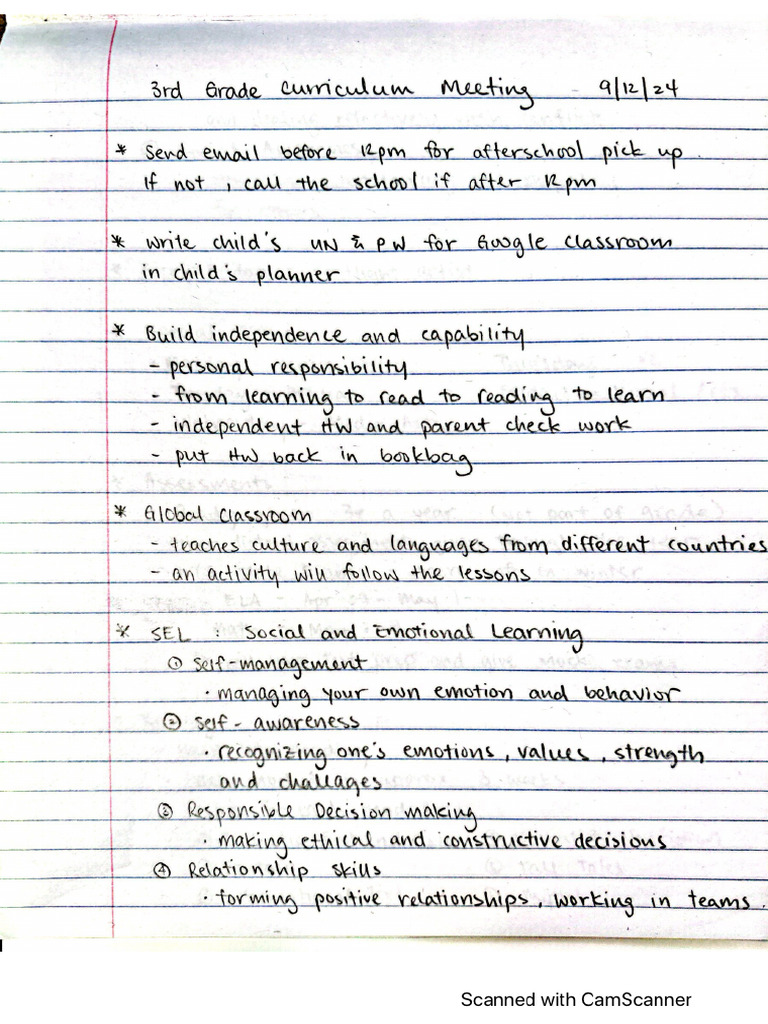 3rd Grade Curriculum Meeting - 9/12/24
* Send email before 12pm for afterschool pick up.
If not, call the school if after 12pm
* Write child's UN & PW for Google Classroom
in child's planner
* Build independence and capability
- personal responsibility
- from learning to read to reading to learn
- independent HW and parent check work
- put HW back in bookbag
* Global Classroom
- teaches culture and languages from different countries
- an activity will follow the lessons
* SEL : Social and Emotional Learning
① Self-management
· managing your own emotion and behavior
② Self-awareness
· recognizing one's emotions, values, strength
and challages
③ Responsible Decision making
· making ethical and constructive decisions
④ Relationship skills
· forming positive relationships, working in teams.
Scanned with CamScanner